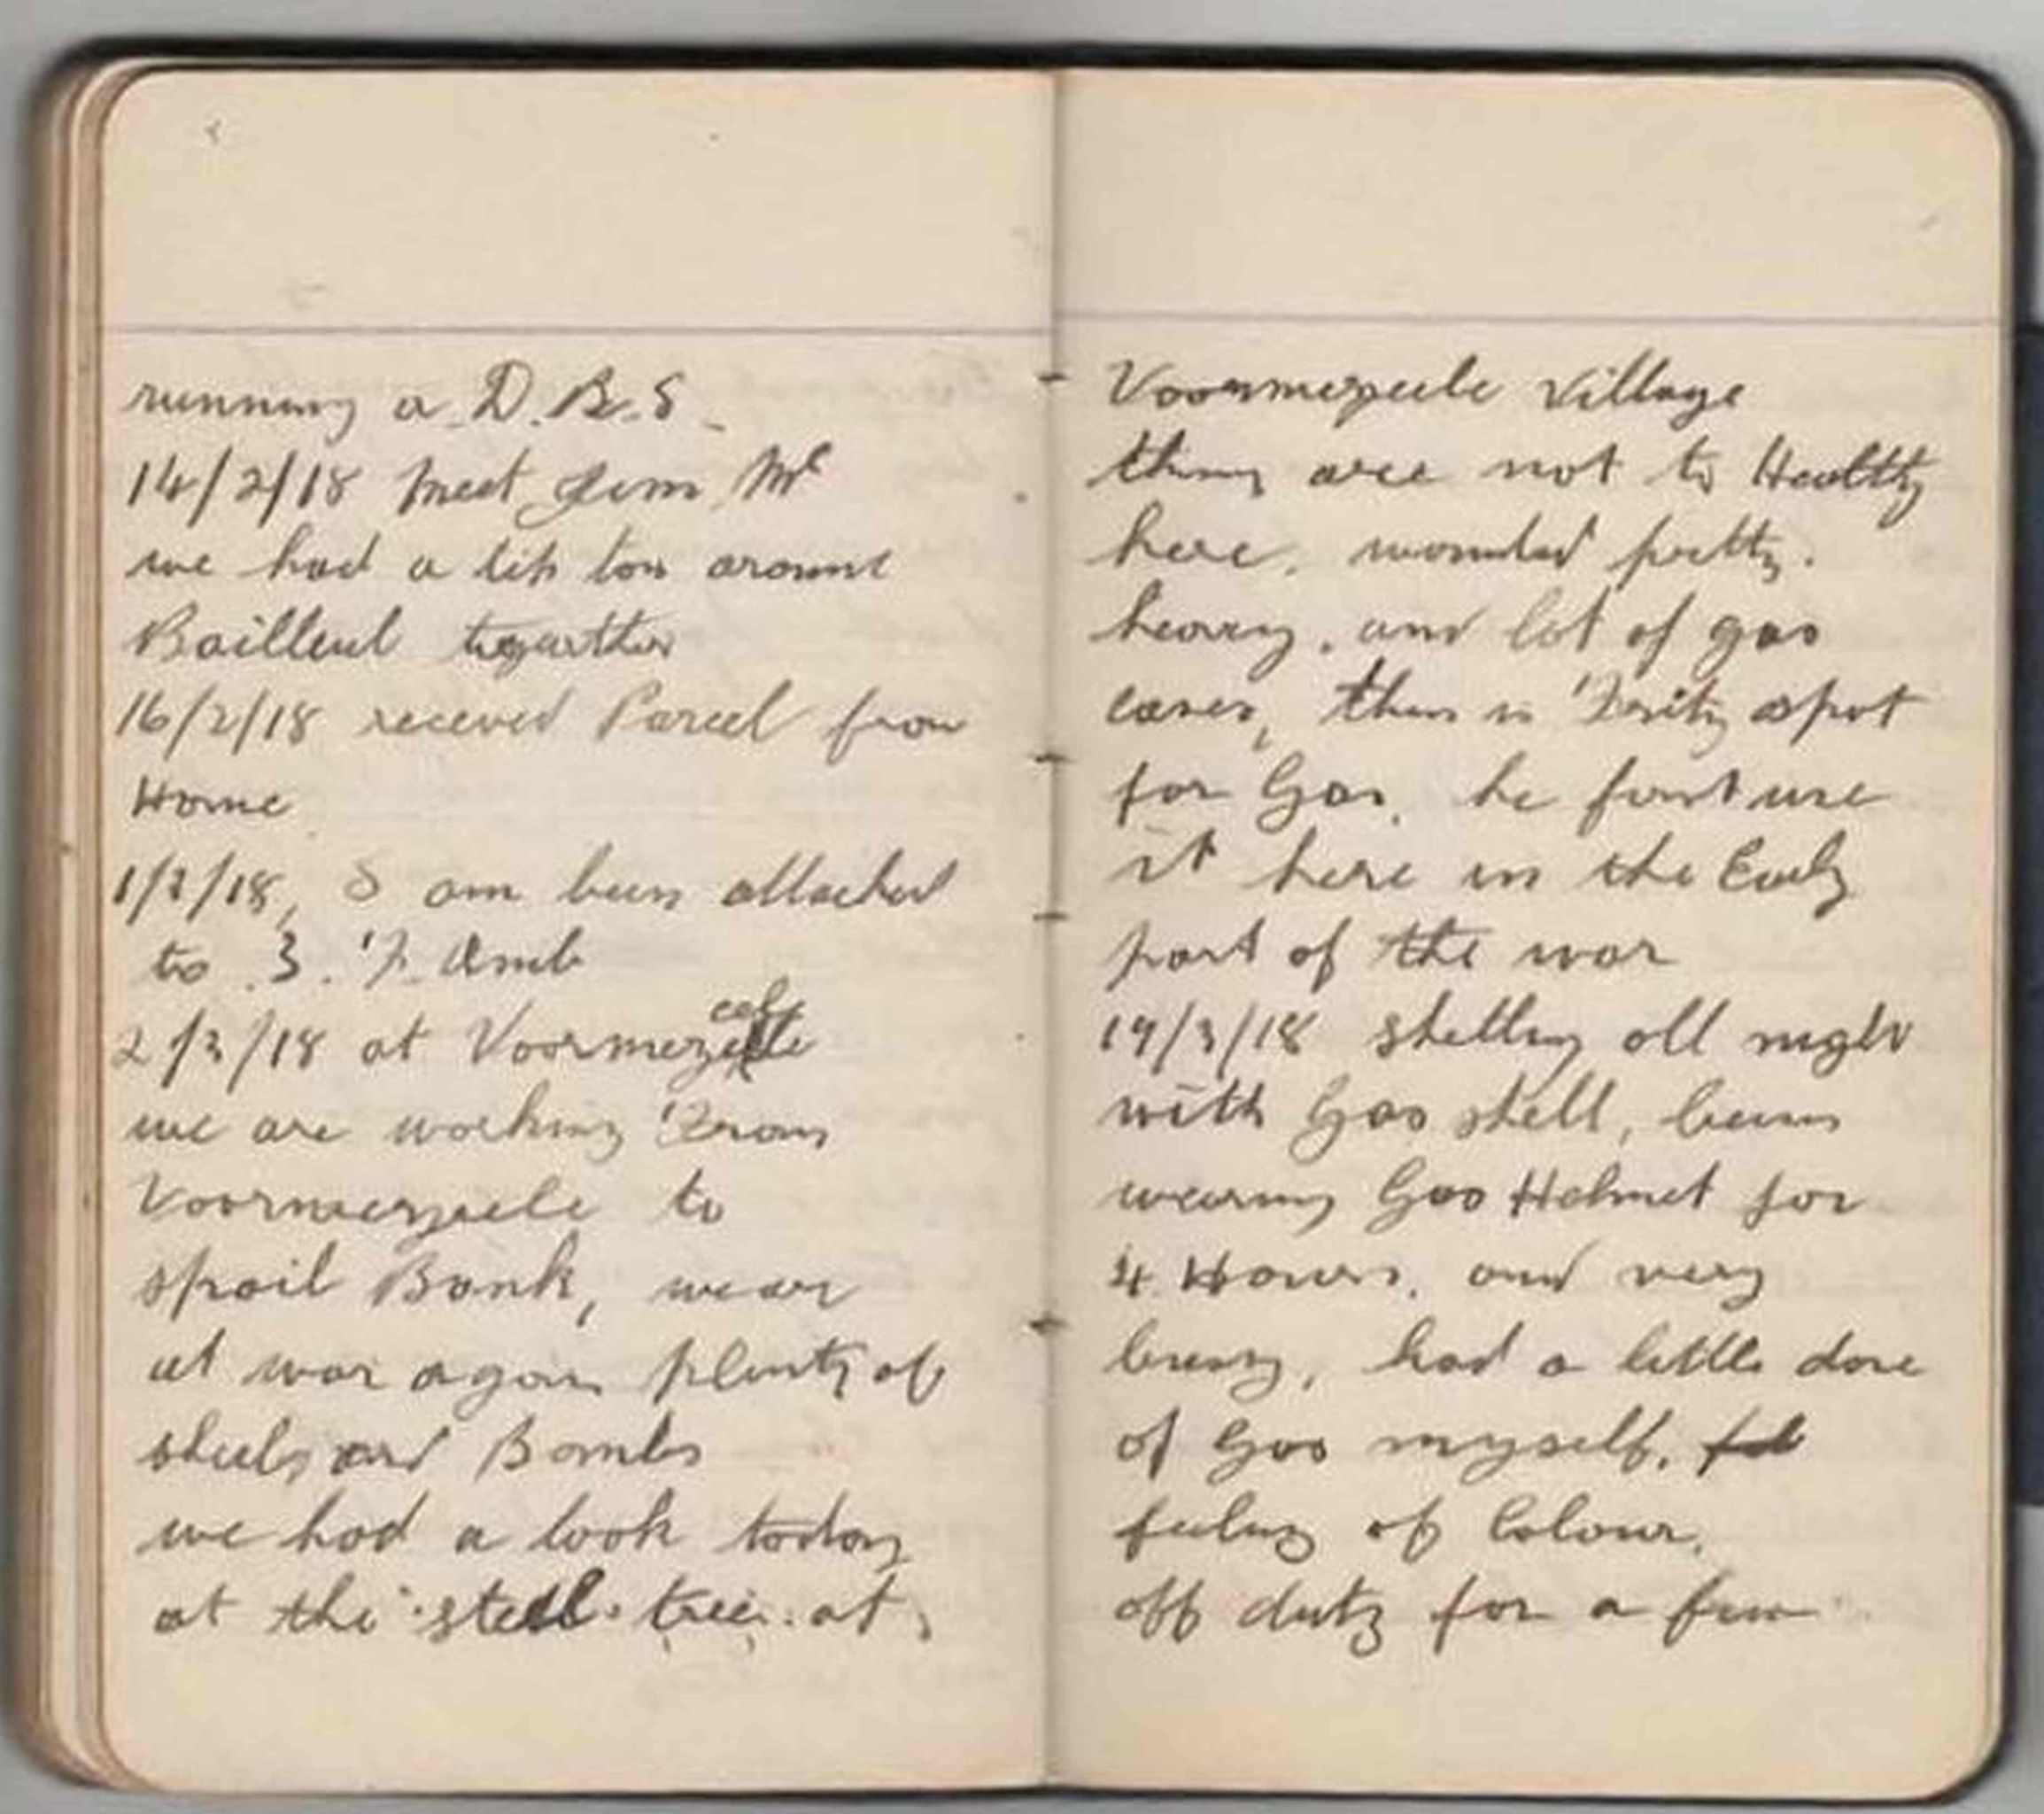 running a D.B.S.
14/2/18 meet Jim Mc
we had a around
Bailleul togeather
16/2/18 receved Parcel from
Home
1/3/18, I am been attached
to 3. F. Amb
2/3/18 at Voormezeele
we are working From
Voormerzeele to
spoil Bank, wear
at war again plenty of
sheels and Bombs
we had a look today
at the steel tree at
Voormezeele Village
thing are not to Healthy
here, wounded pretty
heavy, and lot of gas
cases, this is Fritz spot
for Gas, he first use
it here in the Early
part of the war
19/3/18 shelling all night
with Gas shell, been
wearing Gas Helmet for
4 Hours, and very
busy, had a little dose
of Gas myself,
feeling of Colour,
off duty for a few